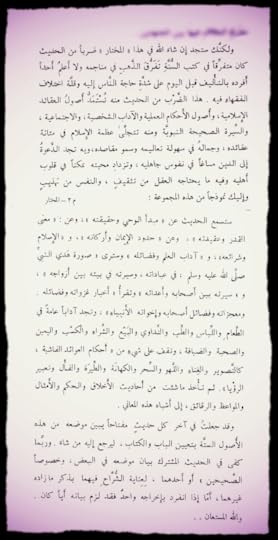 ولكنك ستجد إن شاء الله في هذا « المختار » ضرباً من الحديث
كان متفرقاً في كتب السنة تفرق الذهب في مناجمه ولا أعلم أحداً
أفرده بالتأليف قبل اليوم على شدة حاجة الناس إليه وقلة اختلاف
الفقهاء فيه . هذا الضرب من الحديث منه تُستمد أصول العقائد
الإسلامية ، وأصول الأحكام العملية والآداب الشخصية ، والاجتماعية ،
والسيرة الصحيحة النبوية ومنه تتجلى عظمة الإسلام في متانة
عقائده ، وجماله في سهولة تعاليمه وسمو مقاصده ، وبه تجد الدعوة
إلى الدين مساغاً في نفوس جاهليه ، وتزداد محبته تمكناً في قلوب
أهليه وفيه ما يحتاجه العقل من تثقيف ، والنفس من تهذيب
وإليك نموذجاً من هذه المجموعة :
م ٢ ــ المختار
ستسمع الحديث عن « مبدأ الوحي وحقيقته » ، وعن : « معنى
القدر وعقيدته » ، وعن « حدود الإيمان وأركانه » ، و « الإسلام
وشرائعه » ، و « آداب العلم وفضائله » وسترى « صورة هدي النبي
صلى الله عليه وسلم : في عباداته ، وسيرته في بيته بين أزواجه » ،
و « سيرته بين أصحابه وأعدائه » وتقرأ « أخبار غزواته وفضائله .
ومعجزاته وفضائل أصحابه وإخوانه الأنبياء » ، وتجد آداباً عامة في
الطعام واللباس والطب ، والتداوي والبيع والشراء والكسب واليمين
والصحبة والضيافة ، وتقف على شيء من « أحكام العوائد الفاشية ،
كالتصوير والغناء واللهو والسحر والكهانة والطيرة والفأل وتعبير
الرؤيا » . ثم تأخذ ما شئت من أحاديث الأخلاق والحكم والأمثال
والمواعظ والرقائق ، إلى أشباه هذه المعاني .
وقد جعلت في آخر كل حديث مفتاحاً يبين موضعه من هذه
الأصول الستة بتعيين الباب والكتاب ، ليرجع إليه من شاء . وربما
كفى في الحديث المشترك بيان موضعه في البعض ، وخصوصاً
الصحيحين » أو أحدهما ، لعناية الشراح فيهما بذكر ما زاده
غيرهما ، أما إذا انفرد بإخراجه واحد فقد لزم بيانه أياً كان .
والله المستعان ..